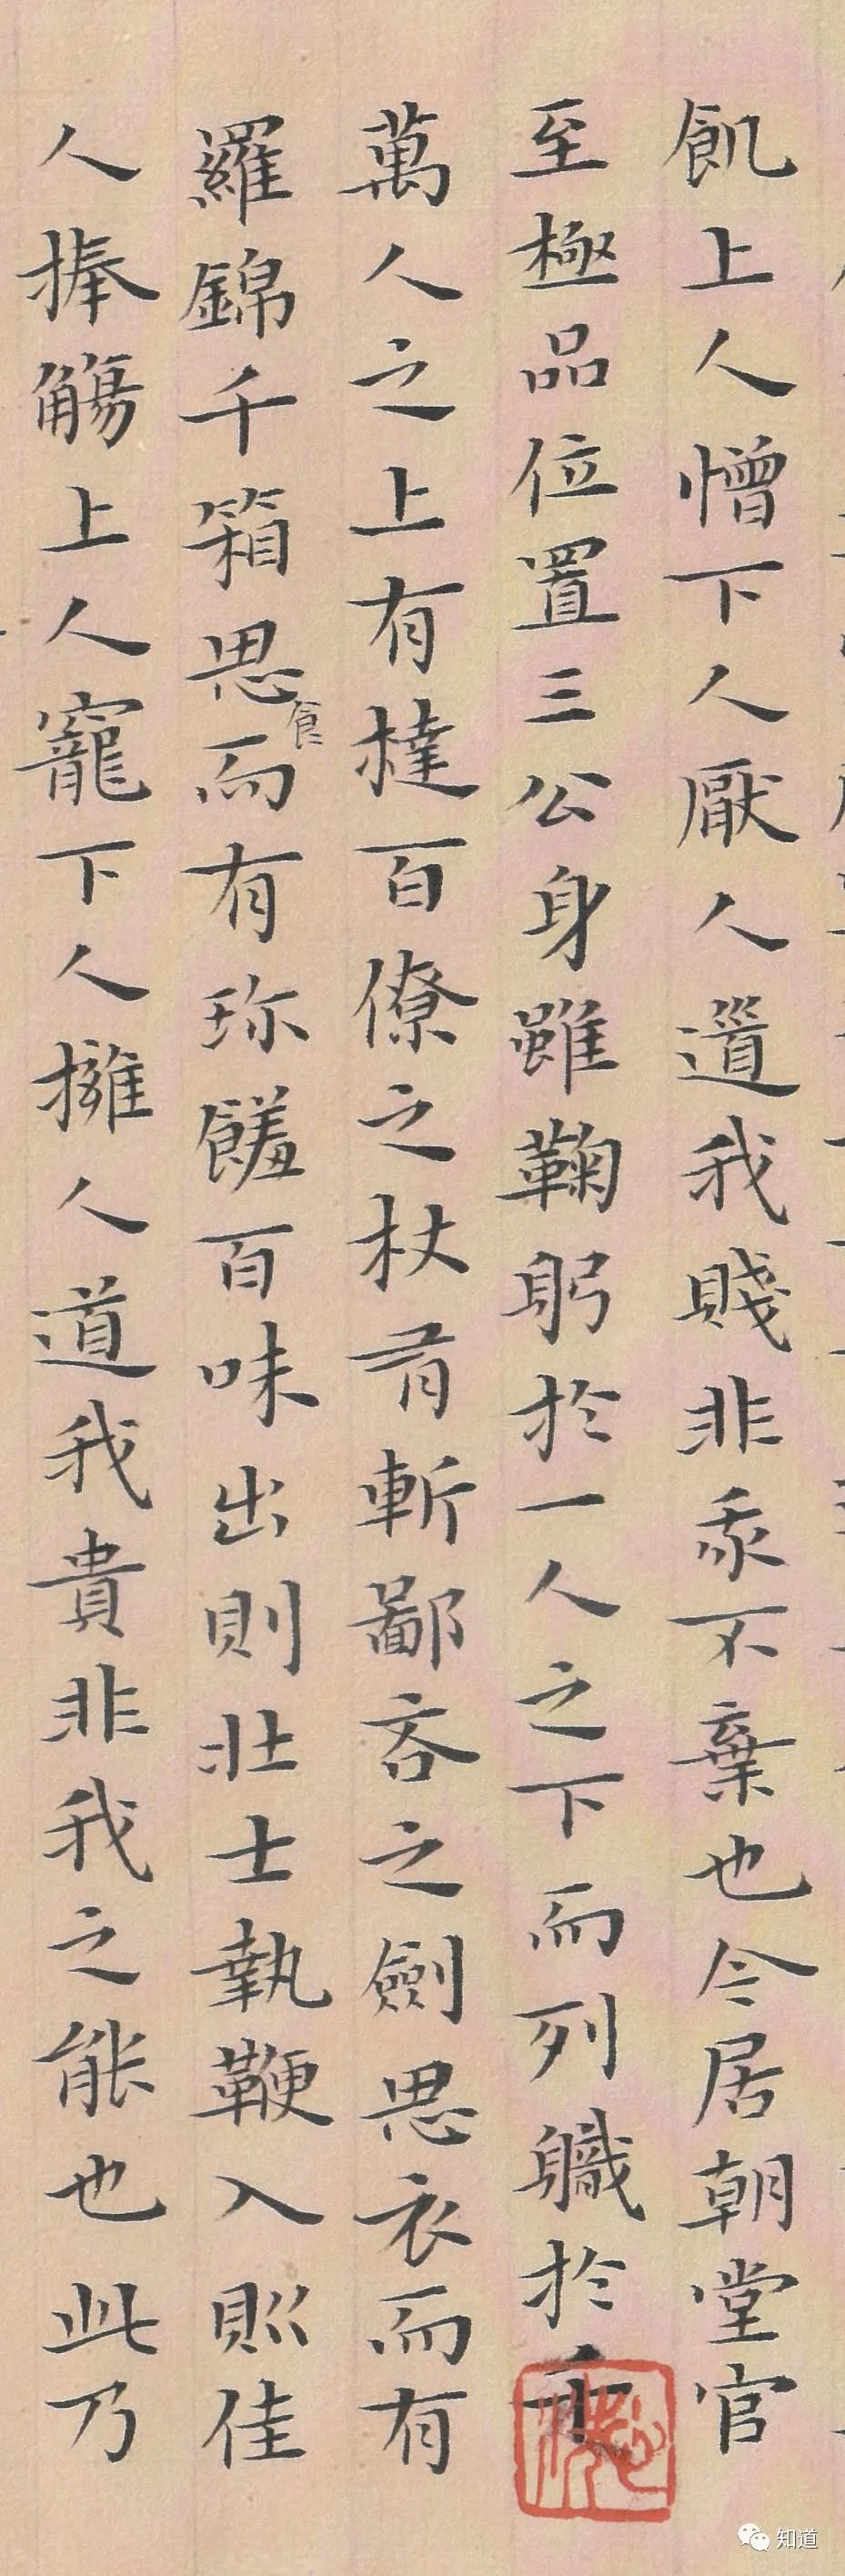 飢上人憎下人厭人道我賤非不棄也今居朝堂官
至極品位置三公身雖鞠躬於一人之下而列軄於
萬人之上有撻百僚之杖有斬鄙吝之劍思衣而有
羅錦千箱思食而有珎饈百味出則壯士執鞭入則佳
人捧觴上人寵下人擁人道我貴非我之能也此乃
知道